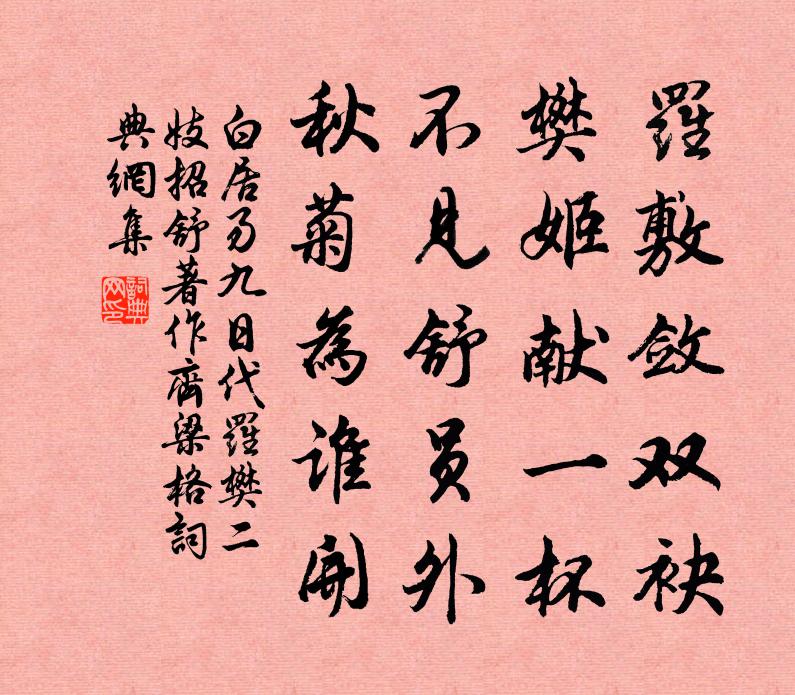 羅敷斂双袂
樊姬献一杯
不見舒員外
秋菊為誰開
白居易九日代羅樊二
妓招舒著作齊梁格詞
典網集
詞典网印